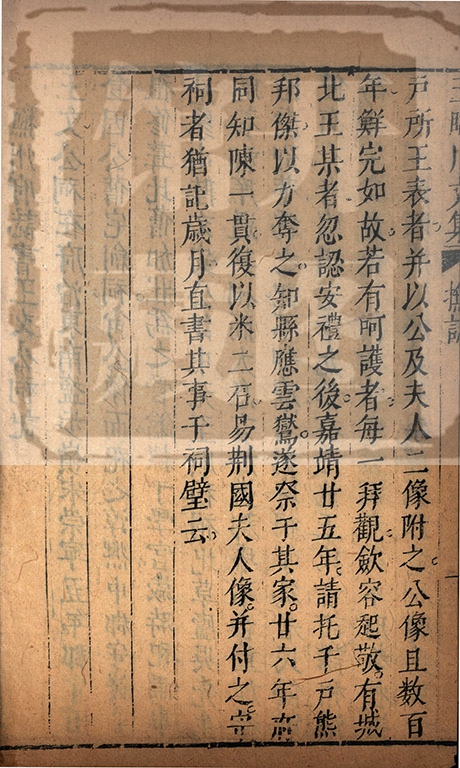 戶所王表者并以公及夫人二像附之公像且數百
年鮮完如故若有呵護者每一拜觀歛容起敬有城
北王某者忽認安禮之後嘉靖廿五年請托千戶熊
邦傑以力奪之知縣應雲鸑遂祭于其家廿六年
同知陳一貫復以米二石易荆國夫人像并付之守
祠者猶記歲月直書其事于祠壁云